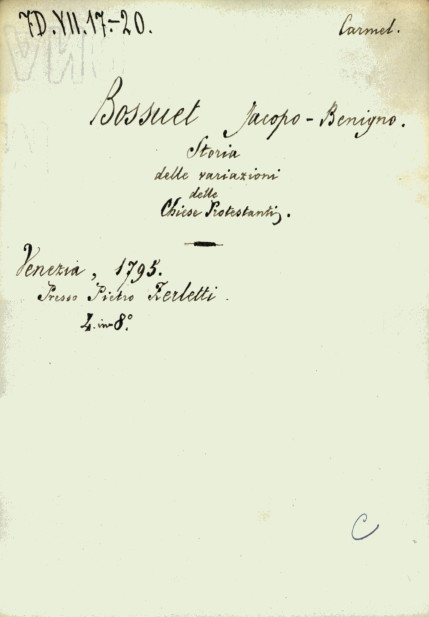 7D.VII.17.-20. Carmel.
Bossuet Jacopo-Benigno.
Storia
delle variazioni
delle
Chiese Protestanti.
Venezia, 1795.
Presso Pietro Zerletti.
4. in 8°.
C